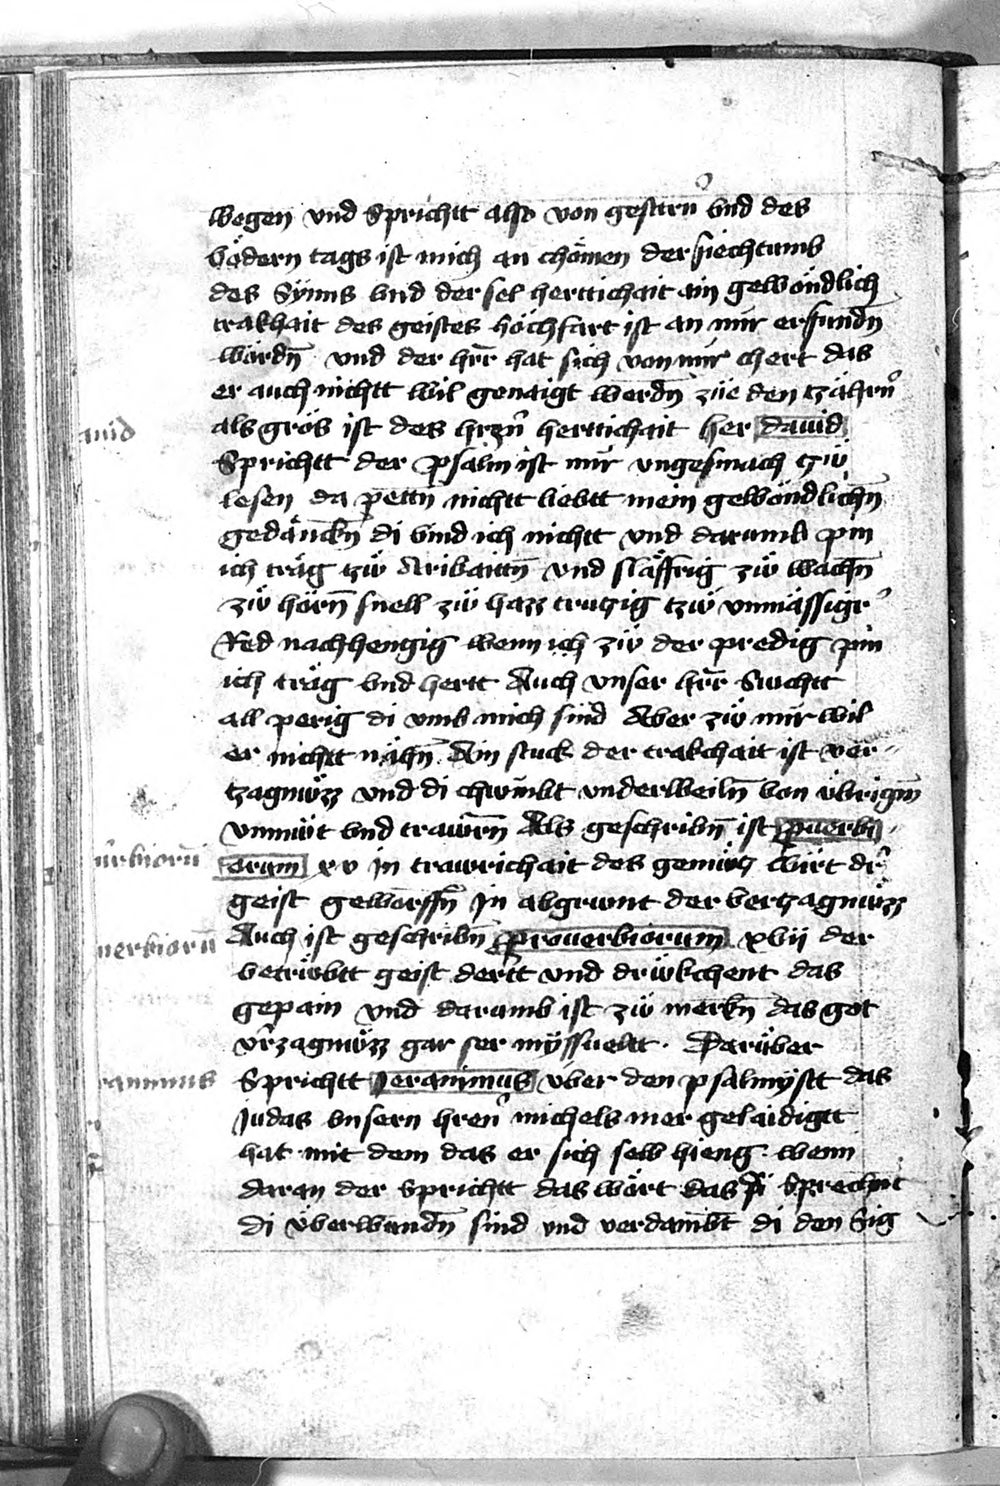 wegen vnd Sprichtt also von gestern vnd des
vödern tags ist mich an chömen der siechtumb
des Synns vnd der sel herttichait ain gewöndlich
trakhait des geistes höchfart ist an mir erfundn̄
wördn̄ vnd der hr̄r hat sich von mir chert das
er auch nichtt wil genaigt werdn̄ züe den tzähern
als grös ist des hrzn̄ herttichait her dauid
Sprichtt der psalm ist mir vngesmach tzü
lesen da pettn nichtt liebtt mein gewöndlichn̄
gedänckn̄ di vind ich nichtt vnd darumb pin
ich träg tzü Aribaittn̄ vnd släffrig zü wachn̄
zü hörn̄ snell zü hazz trutzig tzü vnmässigr
Red nachhengig wenn ich zü der predig pin
ich träg vnd hertt Auch vnser hr̄r Suchtt
all perig di vmb mich sind Aber zü mir wil
er nichtt nähn̄ Ain stuck der trakchait ist ver-
tzagnüzz vnd di chümbt vnderweiln̄ von übrigm̄
vnmüt vnd trawrn̄ Als geschribn̄ ist prouerbi-
orum xv Jn trawrichait des gemütz wirt dr
geist geworffn̄ Jn abgrunt der vertzagnüzz
Auch ist geschribn̄ prouerbiorum xvij der
betrübtt geist dertt vnd drükchent das
gepain vnd darumb ist zü merkn̄ das got
vr̄zagnüzz gar ser myssueltt. Darüber
Sprichtt Jeranimus über den psalmystt das
Judas vnsern hren michels mer gelaidigtt
hat mit dem das er sich selb hieng. wenn
daran der Sprichtt das wört das si Sprechnt
di überwundn̄ sind vnd verdambt di den Sig